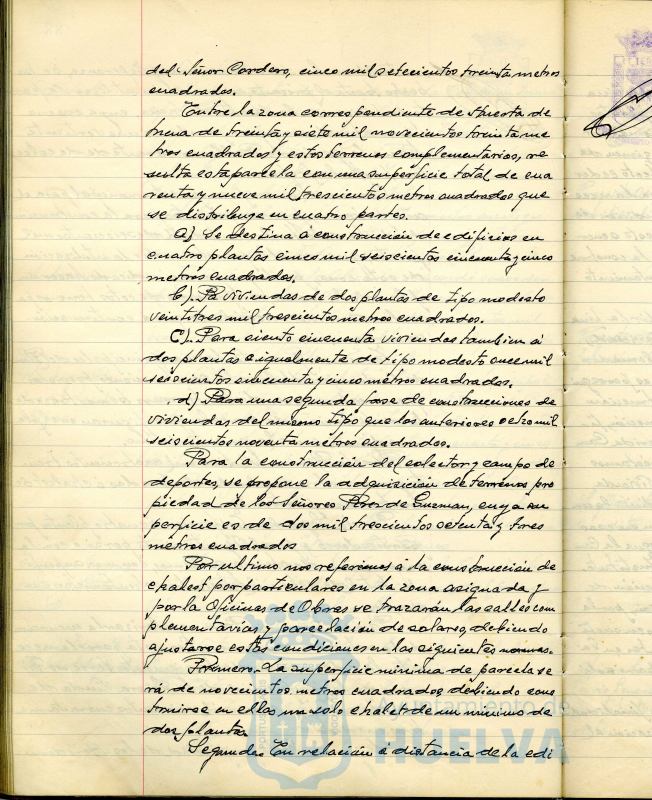 del Señor Cordero, cinco mil setecientos treinta metros
cuadrados.
Entre la zona correspondiente de Huerta de
Mena de treinta y siete mil novecientos treinta me
tros cuadrados y estos terrenos complementarios, re
sulta esta parcela con una superficie total de cua
renta y nueve mil trescientos metros cuadrados que
se distribuye en cuatro partes.
a) Se destina á construcción de edificios en
cuatro plantas cinco mil seiscientos cincuenta y cinco
metros cuadrados.
b). Pa viviendas de dos plantas de tipo modesto
veintitres mil trescientos metros cuadrados.
C). Para ciento cincuenta viviendas tambien á
dos plantas e igualmente de tipo modesto once mil
seiscientos cincuenta y cinco metros cuadrados.
d) Para una segunda fase de construcciones de
viviendas del mismo tipo que las anteriores ocho mil
seiscientos noventa metros cuadrados.
Para la construcción del colector y campo de
deportes, se propone la adquisición de terrenos pro
piedad de los Señores Perez de Guzman, cuya su
perficie es de dos mil trescientos setenta y tres
metros cuadrados
Por ultimo nos referimos á la construcción de
chalest por particulares en la zona asignada y
por la Oficina de Obras se trazarán las calles com
plementarias y parcelación de solares, debiendo
ajustarse estas condiciones en las siguientes normas.
Primero.- La superficie minima de parcela se
rá de novecientos metros cuadrados debiendo cons
truirse en ellos un solo chalet de un minimo de
dos plantas
Segundo. En relación á distancia de la edi
Ayuntamiento de
HUELVA